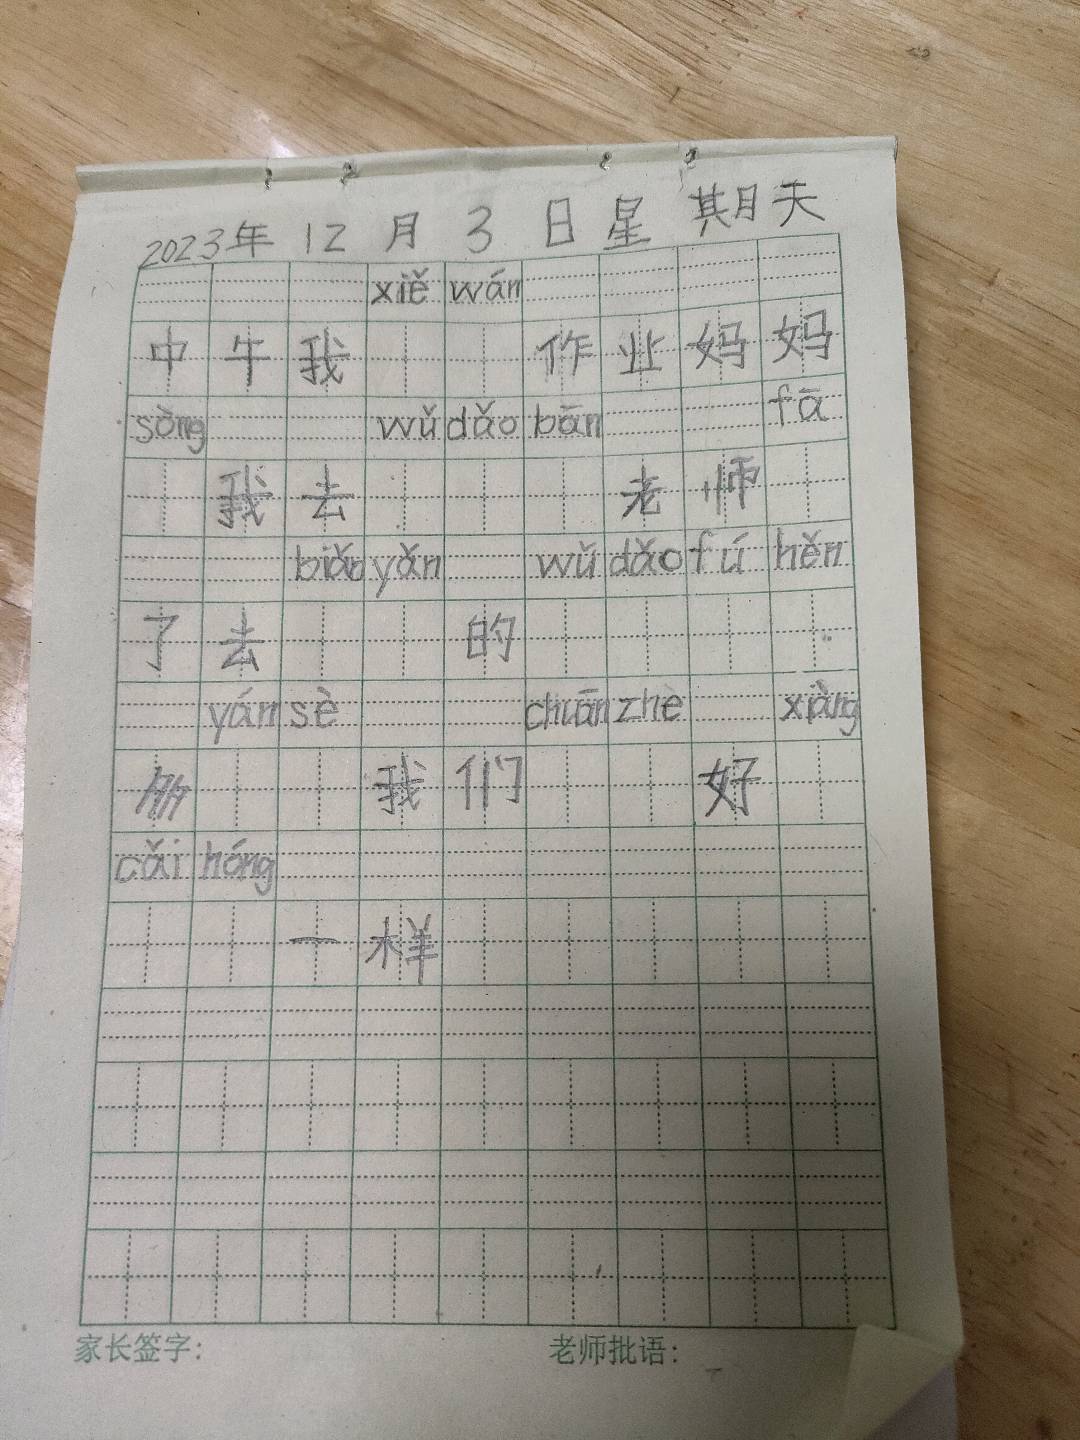 2023年 12 月 3 日 星 期 天
xiě wán
中 午 我 作 业 妈 妈
sòng wǔ dǎo bān fā
我 去 老 师
biǎo yǎn wǔ dǎo fú hěn
了 去 的
yán sè chuān zhe xiàng
我 们 好
cǎi hóng
一 样
家长签字: 老师批语: